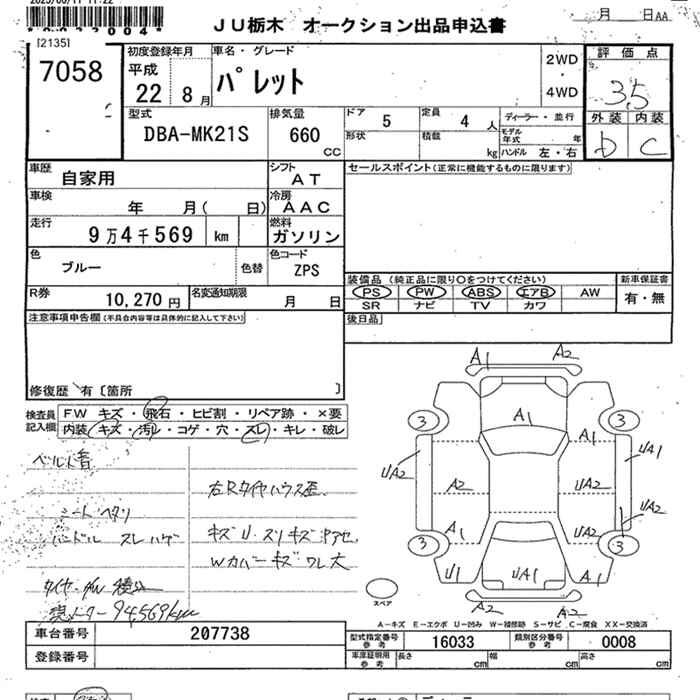 2025/06/11 11:22
JU栃木 オークション出品申込書
月 日 AA
[2135]
7058
初度登録年月
平成
22 8月
車名・グレード
パレット
2WD
・
4WD
評価点
3.5
外装 内装
D C
型式
DBA-MK21S
排気量
660
CC
ドア 5
定員 4 人
ディーラー・並行
形状
積載 kg
モデル年式 年
ハンドル 左・右
車歴
自家用
シフト
AT
セールスポイント(正常に機能するものに限ります)
車検
年 月( 日)
冷房
AAC
走行
9万4千569 km
燃料
ガソリン
色
ブルー
色替
色コード
ZPS
装備品(純正品に限り○をつけてください)
新車保証書
PS PW ABS エアB AW
SR ナビ TV カワ
有・無
R券 10,270円
名変通知期限 月 日
後日品
注意事項申告欄(不具合内容等は具体的に記入して下さい)
修復歴 有〔箇所 〕
検査員
記入欄
FW キズ・飛石・ヒビ割・リペア跡・×要
内装 キズ・汚レ・コゲ・穴・スレ・キレ・破レ
ベルト音
右Rタイヤハウス歪
シートヘタリ
ハンドル スレ ハゲ
キズU・スリキズ
Wカバーキズワレ大
94569km
A1 A2
A1
3 3
UA2 UA1
A2 UA2
UA2
A1 UA2
3 3
U1 UA1 A1
A2 A2
スペア
A-キズ E-エクボ U-凹み W-補修跡 S-サビ C-腐食 XX-交換済
車台番号 207738
登録番号
型式指定番号
参考
16033
類別区分番号
参考
0008
車庫証明用
参考
長さ cm 幅 cm 高さ cm